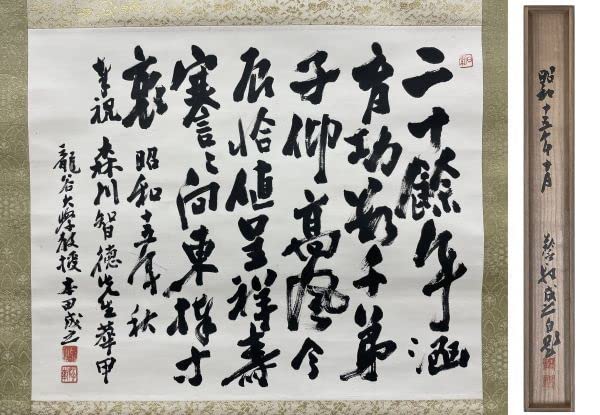 二十餘年涵
育功数千弟
子仰高風今
辰恰値呈祥壽
謇々向東捧寸
衷 昭和十五年秋
奉祝 森川智德先生華甲
龍谷大學教授本田成之
昭和十五年十月
蔭軒成之自題